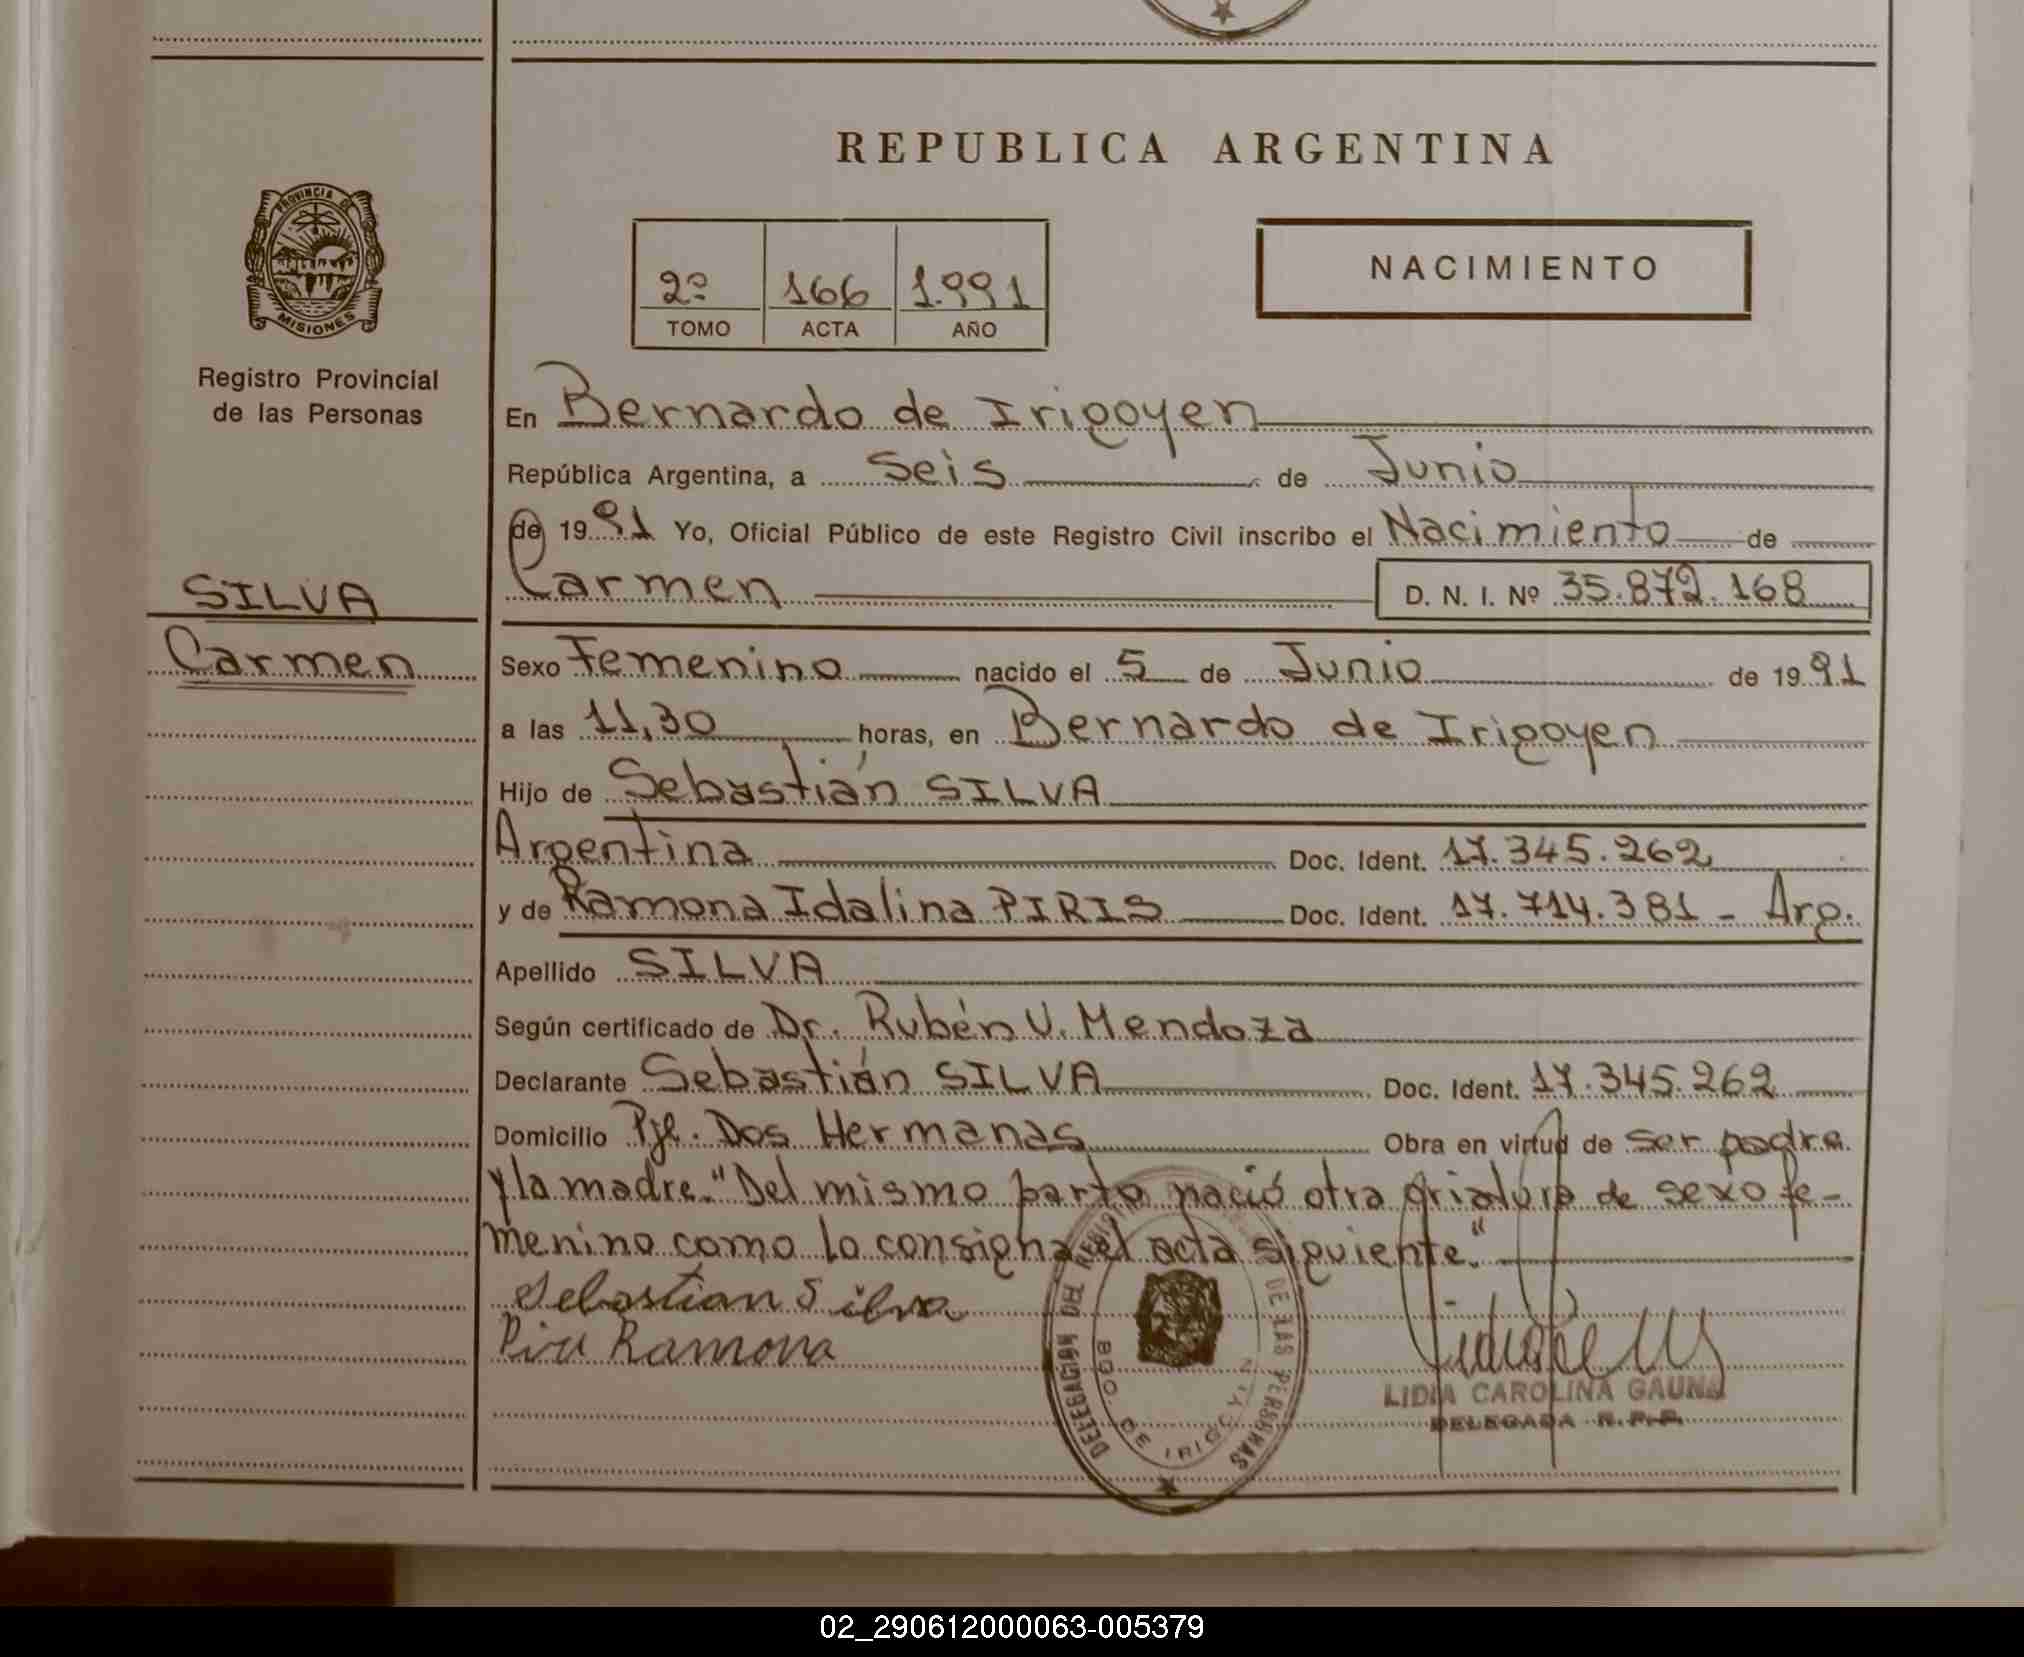 REPUBLICA ARGENTINA
PROVINCIA DE
MISIONES
Registro Provincial
de las Personas
2º 166 1.991
TOMO ACTA AÑO
NACIMIENTO
En Bernardo de Irigoyen
República Argentina, a Seis de Junio
de 19 91 Yo, Oficial Público de este Registro Civil inscribo el Nacimiento de
Carmen D. N. I. Nº 35.872.168
SILVA
Carmen
Sexo Femenino nacido el 5 de Junio de 19 91
a las 11,30 horas, en Bernardo de Irigoyen
Hijo de Sebastián SILVA
Argentina Doc. Ident. 17.345.262
y de Ramona Idalina PIRIS Doc. Ident. 17.714.381 - Arg.
Apellido SILVA
Según certificado de Dr. Rubén V. Mendoza
Declarante Sebastián SILVA Doc. Ident. 17.345.262
Domicilio Pje. Dos Hermanas Obra en virtud de ser padre
y la madre. "Del mismo parto nació otra criatura de sexo fe-
menino como lo consigna el acta siguiente."
Sebastian Silva
Ramona
DELEGACION DEL REGISTRO DE LAS PERSONAS
BDO. DE IRIGOYEN
LIDIA CAROLINA GAUNA
DELEGADA R. P. P.
02_290612000063-005379